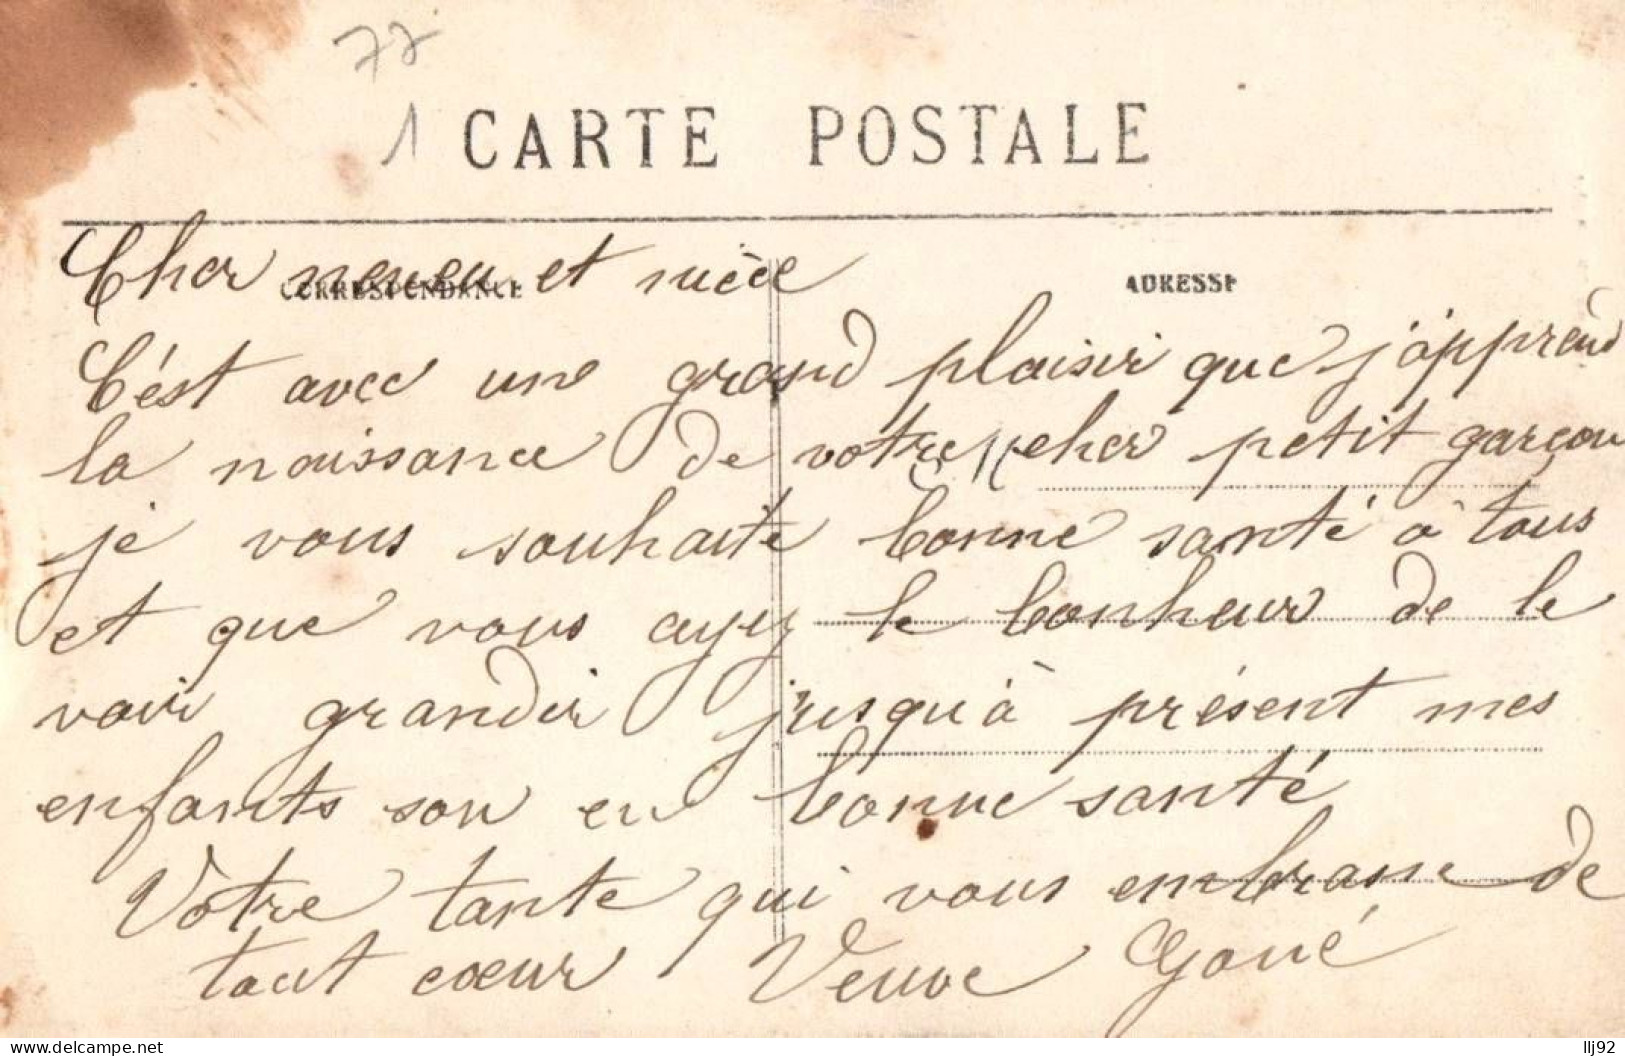 77
1 CARTE POSTALE
CORRESPONDANCE
ADRESSE
Cher neveu et nièce
C'est avec une grand plaisir que j'apprend
la naissance de votre cher petit garçon
je vous souhaite bonne santé à tous
et que vous ayez le bonheur de le
voir grandir jusqu'à présent mes
enfants son en bonne santé
Votre tante qui vous embrasse de
tout cœur Veuve Goué
delcampe.net
llj92